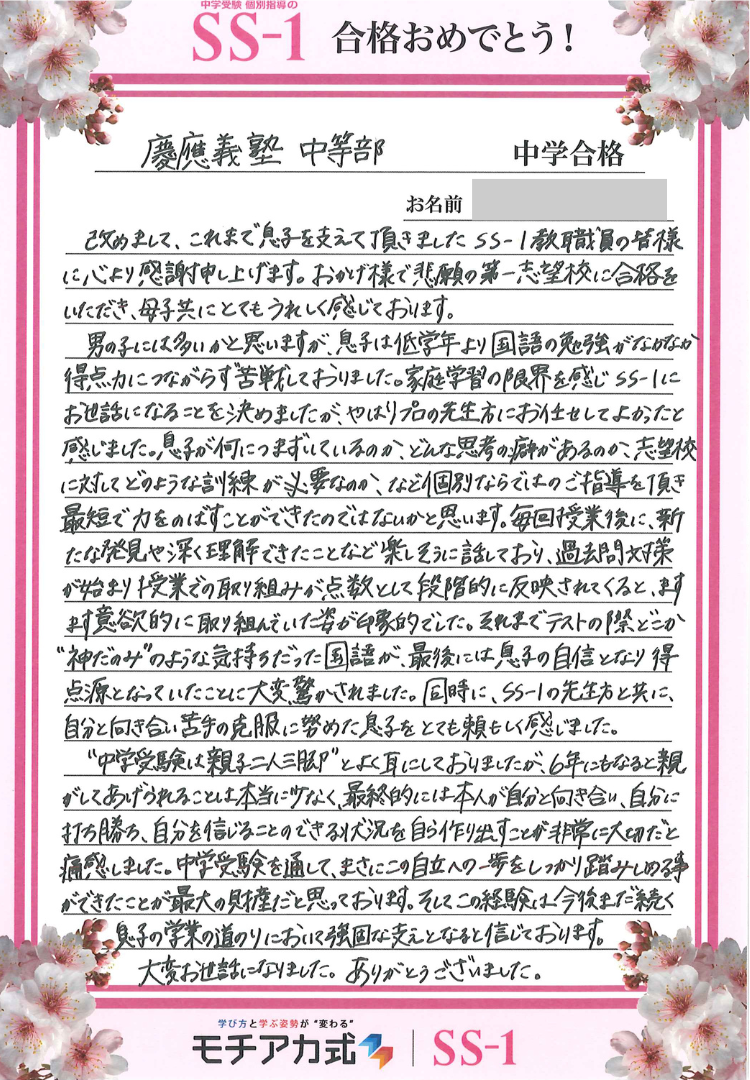 中学受験 個別指導の
SS-1 合格おめでとう!
慶應義塾 中等部 中学合格
お名前
改めまして、これまで息子を支えて頂きましたSS-1教職員の皆様
に心より感謝申し上げます。おかげ様で悲願の第一志望校に合格を
いただき、母子共にとてもうれしく感じております。
男の子には多いかと思いますが、息子は低学年より国語の勉強がなかなか
得点力につながらず苦戦しておりました。家庭学習の限界を感じSS-1に
お世話になることを決めましたが、やはりプロの先生方にお任せしてよかったと
感じました。息子が何につまずいているのか、どんな思考の癖があるのか、志望校
に対してどのような訓練が必要なのか、など個別ならではのご指導を頂き
最短で力をのばすことができたのではないかと思います。毎回授業後に、新
たな発見や深く理解できたことなど楽しそうに話しており、過去問対策
が始まり授業での取り組みが点数として段階的に反映されてくると、ます
ます意欲的に取り組んでいた姿が印象的でした。それまでテストの際どこか
“神だのみ”のような気持ちだった国語が、最後には息子の自信となり得
点源となっていたことに大変驚かされました。同時に、SS-1の先生方と共に、
自分と向き合い苦手の克服に努めた息子をとても頼もしく感じました。
“中学受験は親子二人三脚”とよく耳にしておりましたが、6年にもなると親
がしてあげられることは本当に少なく、最終的には本人が自分と向き合い、自分に
打ち勝ち、自分を信じることのできる状況を自ら作り出すことが非常に大切だと
痛感しました。中学受験を通して、まさにこの自立への一歩をしっかり踏みしめる事
ができたことが最大の財産だと思っております。そしてこの経験は今後まだ続く
息子の学業の道のりにおいて強固な支えとなると信じております。
大変お世話になりました。ありがとうございました。
学び方と学ぶ姿勢が“変わる”
モチアカ式 SS-1